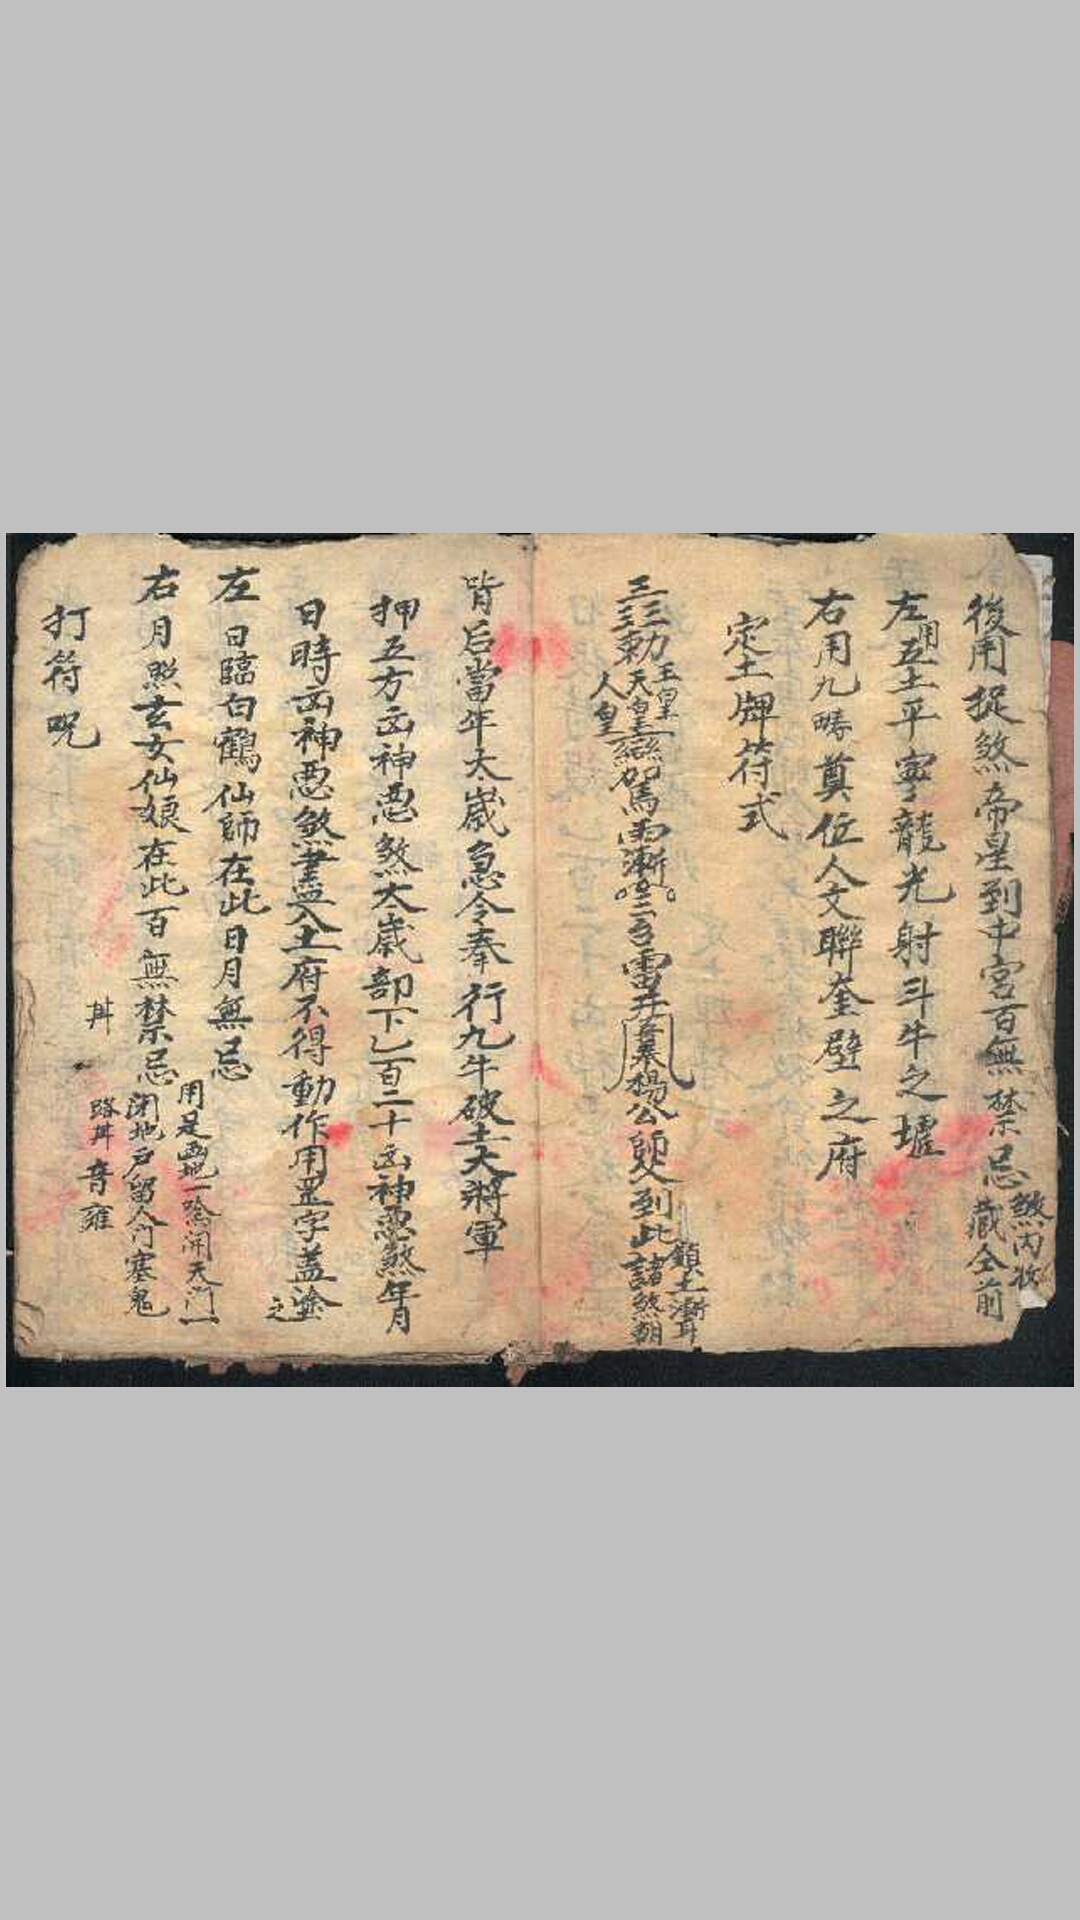 後用捉煞帝星到中宮百無禁忌
煞內收
藏全前
左用五土平寧龍光射斗牛之墟
右用九疇奠位人文聯奎壁之府
定土牌符式
玉皇
三三勅天皇
人皇
駕雨漸
雷
楊公
到此
鎮土
諸煞朝
背后當年太歲急令奉行九牛破土大將軍
押五方凶神惡煞太歲部下乙百二十凶神惡煞年月
日時凶神惡煞盡入土府不得動作用罡字蓋塗
之
左日臨白鶴仙師在此日月無忌
右月照玄女仙娘在此百無禁忌
用是画地一
開天門一
閉地戶留人門塞鬼
路
打符呪